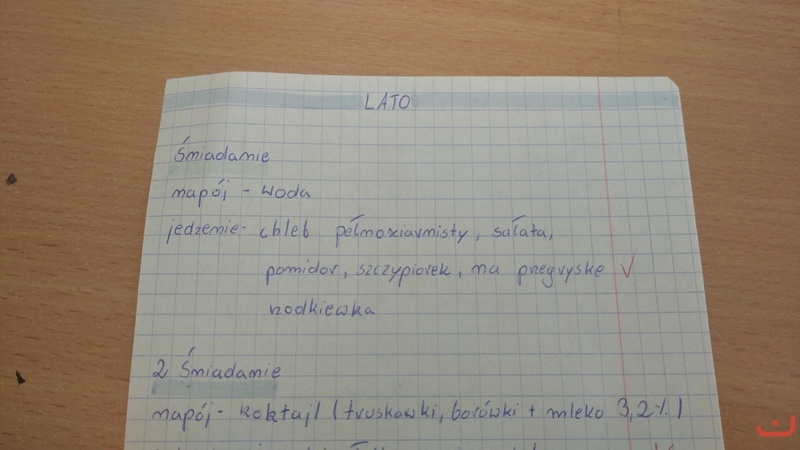 LATO
Śniadanie
napój - woda
jedzenie - chleb pełnoziarnisty, sałata,
pomidor, szczypiorek, na przegryskę
rzodkiewka
2 Śniadanie
napój - koktajl (truskawki, borówki + mleko 3,2%)